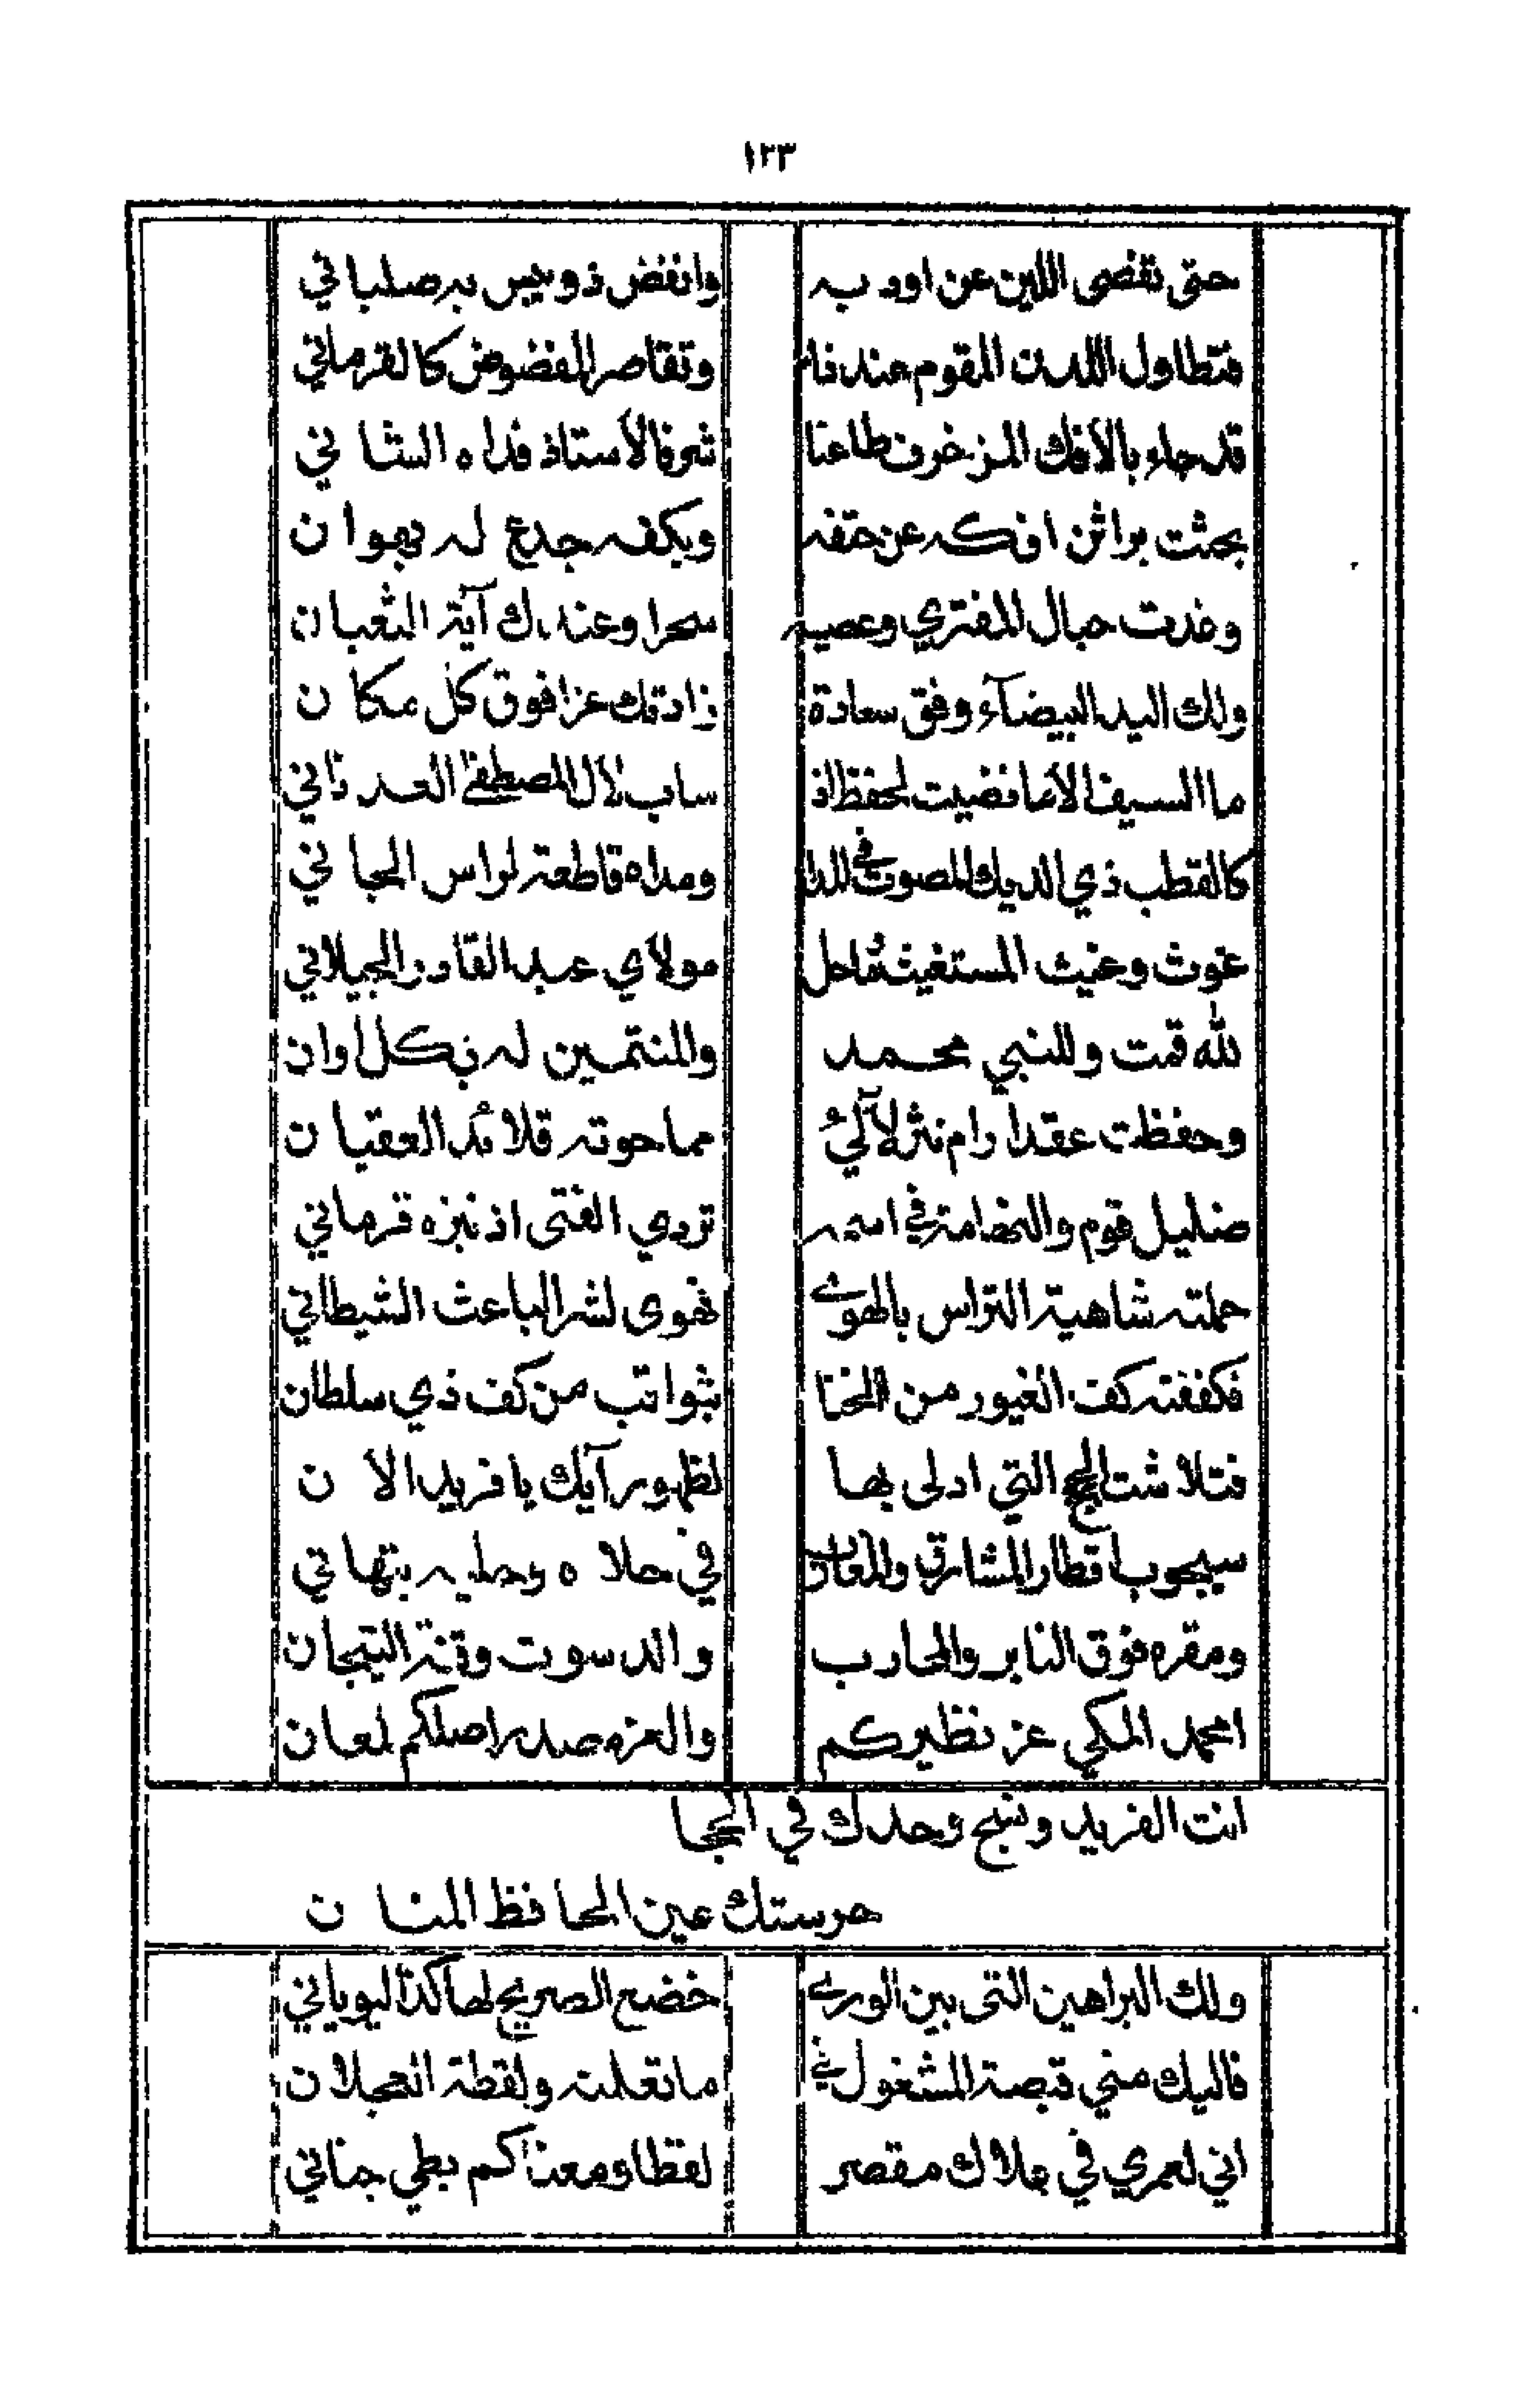 ١٢٣
حتى تقضى اللين عن اود به وانفض ذو يبس به صلباني
فتطاول اللدن المقوم عندنا وتقاصر المفضوض كالقرماني
قد جاء بالافك المزخرف طاعنا شرفا لأستاذ فداه الشاني
بحثت براثن افكه عن حتفه وبكفه جدع له بهوان
وغدت حبال المفتري وعصيه سحرا وعندك آية الثعبان
ولك اليد البيضآء وفق سعادة زادتك عزا فوق كل مكان
ما السيف الا ما نضيت لحفظ اذ ساب لال المصطفى العدناني
كالقطب ذي الديك المصوت في الملا ومداه قاطعة لراس الجاني
غوث وغيث المستغيث بماحل مولاي عبد القادر الجيلاني
لله قمت وللنبي محمد والمنتمين له بكل اوان
وحفظت عقدا رام نثر لآلئ مما حوته قلائد العقيان
ضليل قوم والنضامة في اسمه تردي الفتى اذ نبزه قرماني
حملته شاهية التراس بالهوى تهوى لشر الباعث الشيطاني
فكففته كف الغيور من الخنا بثواقب من كف ذي سلطان
فتلاشت الحجج التي ادلى بها لظهور آيك يا فريد الان
سيجوب اقطار المشارق والمغارب في حلاه وحليه بتهاني
ومقره فوق النابر والمحارب والدسوت وقنة التيجان
امحمد المكي عز نظيركم والعز صدر اصلكم لمعان
انت الفريد ونسج وحدك في الحجا
حرستك عين الحافظ المنان
ولك البراهين التى بين الورى خضع الصريح لها كذا اليوياني
فاليك مني قبصة المشغول في ما تعلمته ولقطة العجلان
اني لعمري في علاك مقصر لفظا ومعناكم بطي جناني